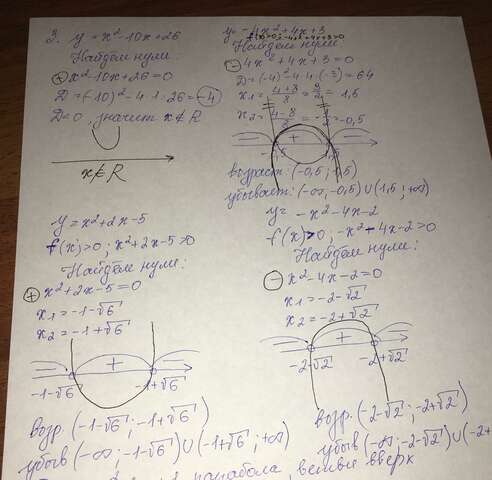 3. y=x²-10x+26
Найдём нули:
⊕ x²-10x+26=0
D=(-10)²-4·1·26=-4
D<0 значит x∉R
x∉R
y=x²+2x-5
f(x)>0; x²+2x-5>0
Найдём нули:
⊕ x²+2x-5=0
x₁=-1-√6
x₂=-1+√6
+
-1-√6 -1+√6
возр. (-1-√6; -1+√6)
убыв (-∞; -1-√6)∪(-1+√6; +∞)
y=-4x²+4x+3
f(x)>0; -4x²+4x+3>0
Найдём нули
⊖ 4x²+4x+3=0
D=(-4)²-4·4·(-3)=64
x₁=(4+8)/8= =1,5
x₂=(4-8)/ = =-0,5
+
возраст: (-0,5; 1,5)
убывает: (-∞; -0,5)∪(1,5; +∞)
y= -x²-4x-2
f(x)>0, -x²-4x-2>0
Найдём нули:
⊖ x²-4x-2=0
x₁=-2-√2
x₂=-2+√2
+
-2-√2 -2+√2
возр. (-2-√2; -2+√2)
убыв (-∞; -2-√2)∪(-2+
парабола, ветви вверх